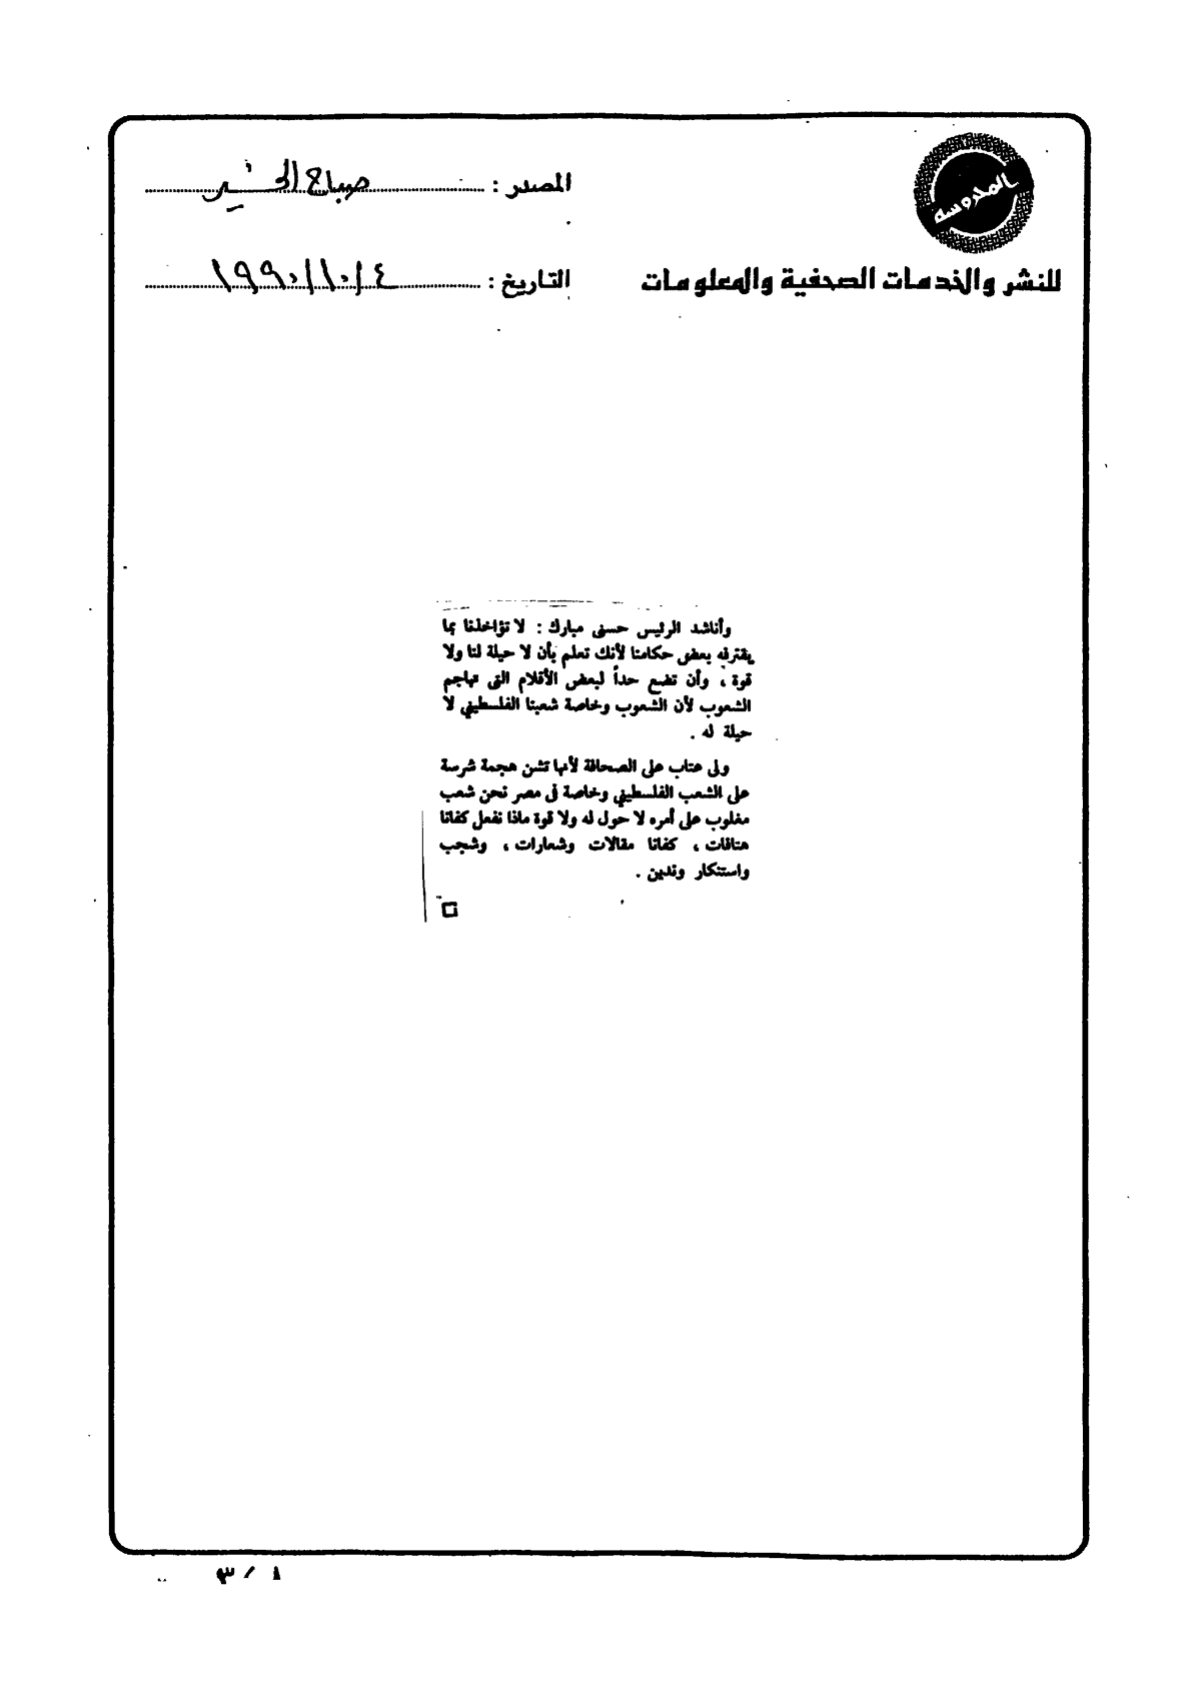 المحروسة
للنشر والخدمات الصحفية والمعلومات
المصدر : صباح الخير
التاريخ : ١٩٩٠/١٠/٤
وأناشد الرئيس حسنى مبارك : لا تؤاخذنا بما
يقترفه بعض حكامنا لأنك تعلم بأن لا حيلة لنا ولا
قوة ، وأن تضع حداً لبعض الأقلام التى تهاجم
الشعوب لأن الشعوب وخاصة شعبنا الفلسطيني لا
حيلة له .
ولى عتاب على الصحافة لأنها تشن هجمة شرسة
على الشعب الفلسطيني وخاصة فى مصر نحن شعب
مغلوب على أمره لا حول له ولا قوة ماذا نفعل كفانا
هتافات ، كفانا مقالات وشعارات ، وشجب
واستنكار وندين .